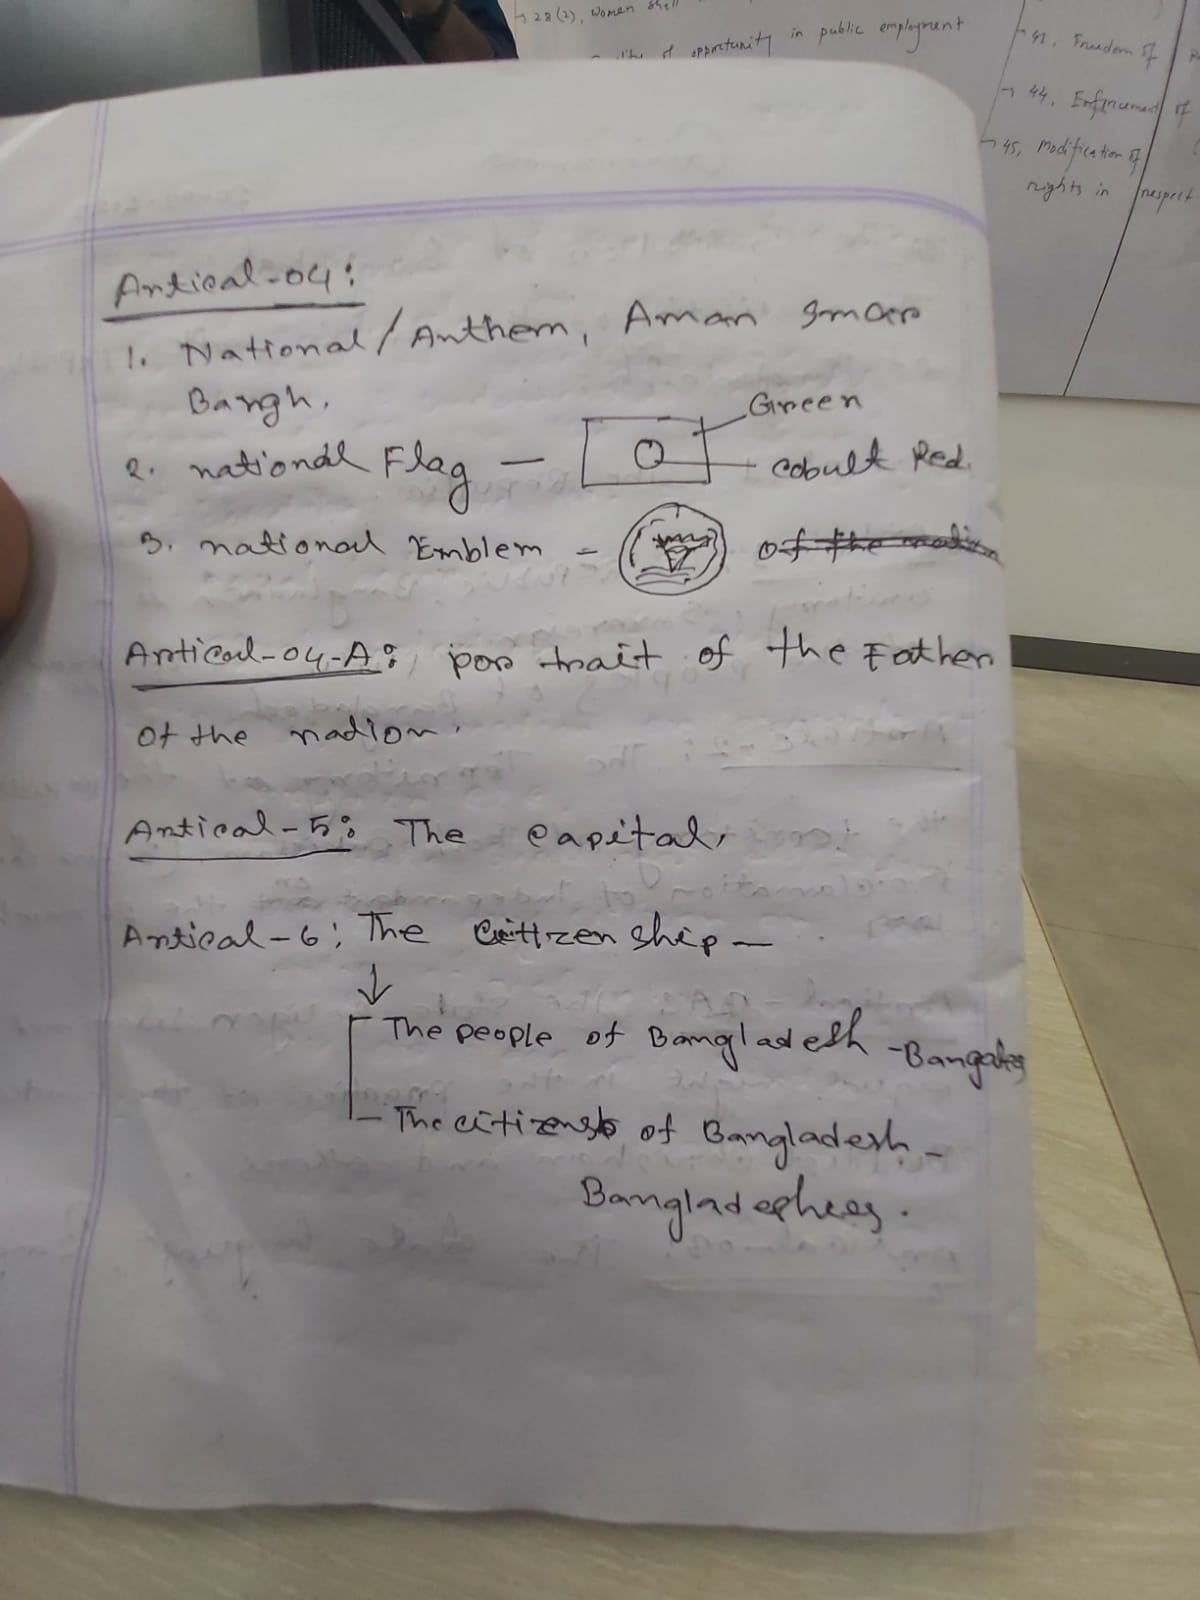 28(2), Women shell
of opportunity in public employment
41, Freedom of
44, Enforcement of
45, Modification of
rights in respect
Artical-04:
1. National/Anthem, Aman
Bangh.
2. national Flag — Green
cobult Red.
3. national Emblem - of the nation
Artical-04-A: por trait of the Father
of the nadion.
Artical-5: The capital,
Artical-6: The Cittzen ship —
The people of Bangladesh -
- The citizens of Bangladesh -
Bangladeshees.